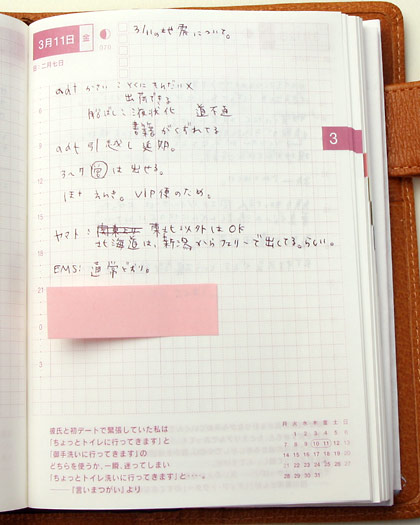 3月11日 金
070
旧・二月七日
3/11の地震について。
adt かさい：とくにもんだい×
出荷できる
船ばし：液状化 道不通
書籍がくずれてる
adt 引越し延期。
は出せる。
VIP便のため。
ヤマト： 東北以外はOK
北海道は、新潟からフェリーで出してる。らしい。
EMS：通常どおり。
3
12
15
18
21
0
3
彼氏と初デートで緊張していた私は
「ちょっとトイレに行ってきます」と
「御手洗いに行ってきます」の
どちらを使うか、一瞬、迷ってしまい
「ちょっとトイレ洗いに行ってきます」と……。
――「言いまつがい」より
月 火 水 木 金 土 日
1 2 3 4 5 6
7 8 9 10 11 12 13
14 15 16 17 18 19 20
21 22 23 24 25 26 27
28 29 30 31